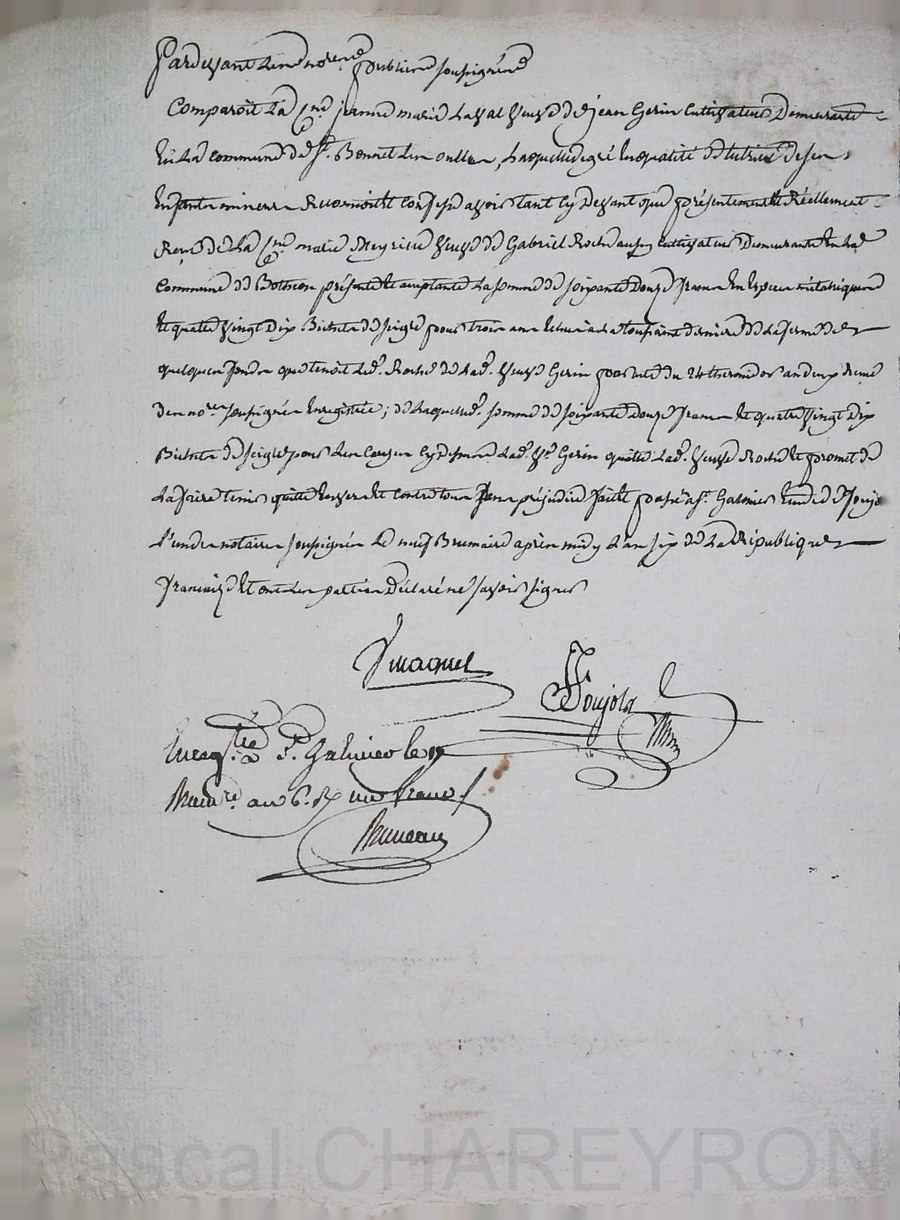 Pardevant les no.res publics soussignés
Comparoît La C.ne jeanne marie Laval veuve de jean Gerin cultivateur Demeurante
En La commune de S.t Bonnet Les oulles, Laquelle degré En qualité de tutrice de ses
Enfants mineurs Reconnoît et confesse avoir tant cy Devant que présentement Réellement
Reçu de La C.ne marie Meyrieu veuve de Gabriel Roche aussy cultivateur Demeurante En La
Commune de Bothéon présente et acceptante La somme de soixante Douze francs En Espèces métalliques
Et quatre vingt Dix Bichets de seigle pour trois ans échus à La toussaint dernier de La ferme de
quelques fonds que tenoit Led. Roche de Lad. veuve Gerin par acte du 24 thermidor an deux Reçu
des no.res soussignés Enregistré; de Laquelle d. somme de soixante Douze francs Et quatre vingt dix
Bichets de seigle pour Les causes cy dessus Lad. v.e Gerin quitte Lad. veuve Roche et promet de
La faire tenir quitte Envers et contre tous sans préjudice fait et passé à S.t Galmier Etude de Soujols
L'un des notaires soussignés Le neuf Brumaire après midy L'an six de La République
française Et ont Les parties Déclaré ne savoir signer
Soujols
Enreg.tré à S.t Galmier le 19
Brum.re an 6. R un franc
Bruneau
Pascal CHAREYRON